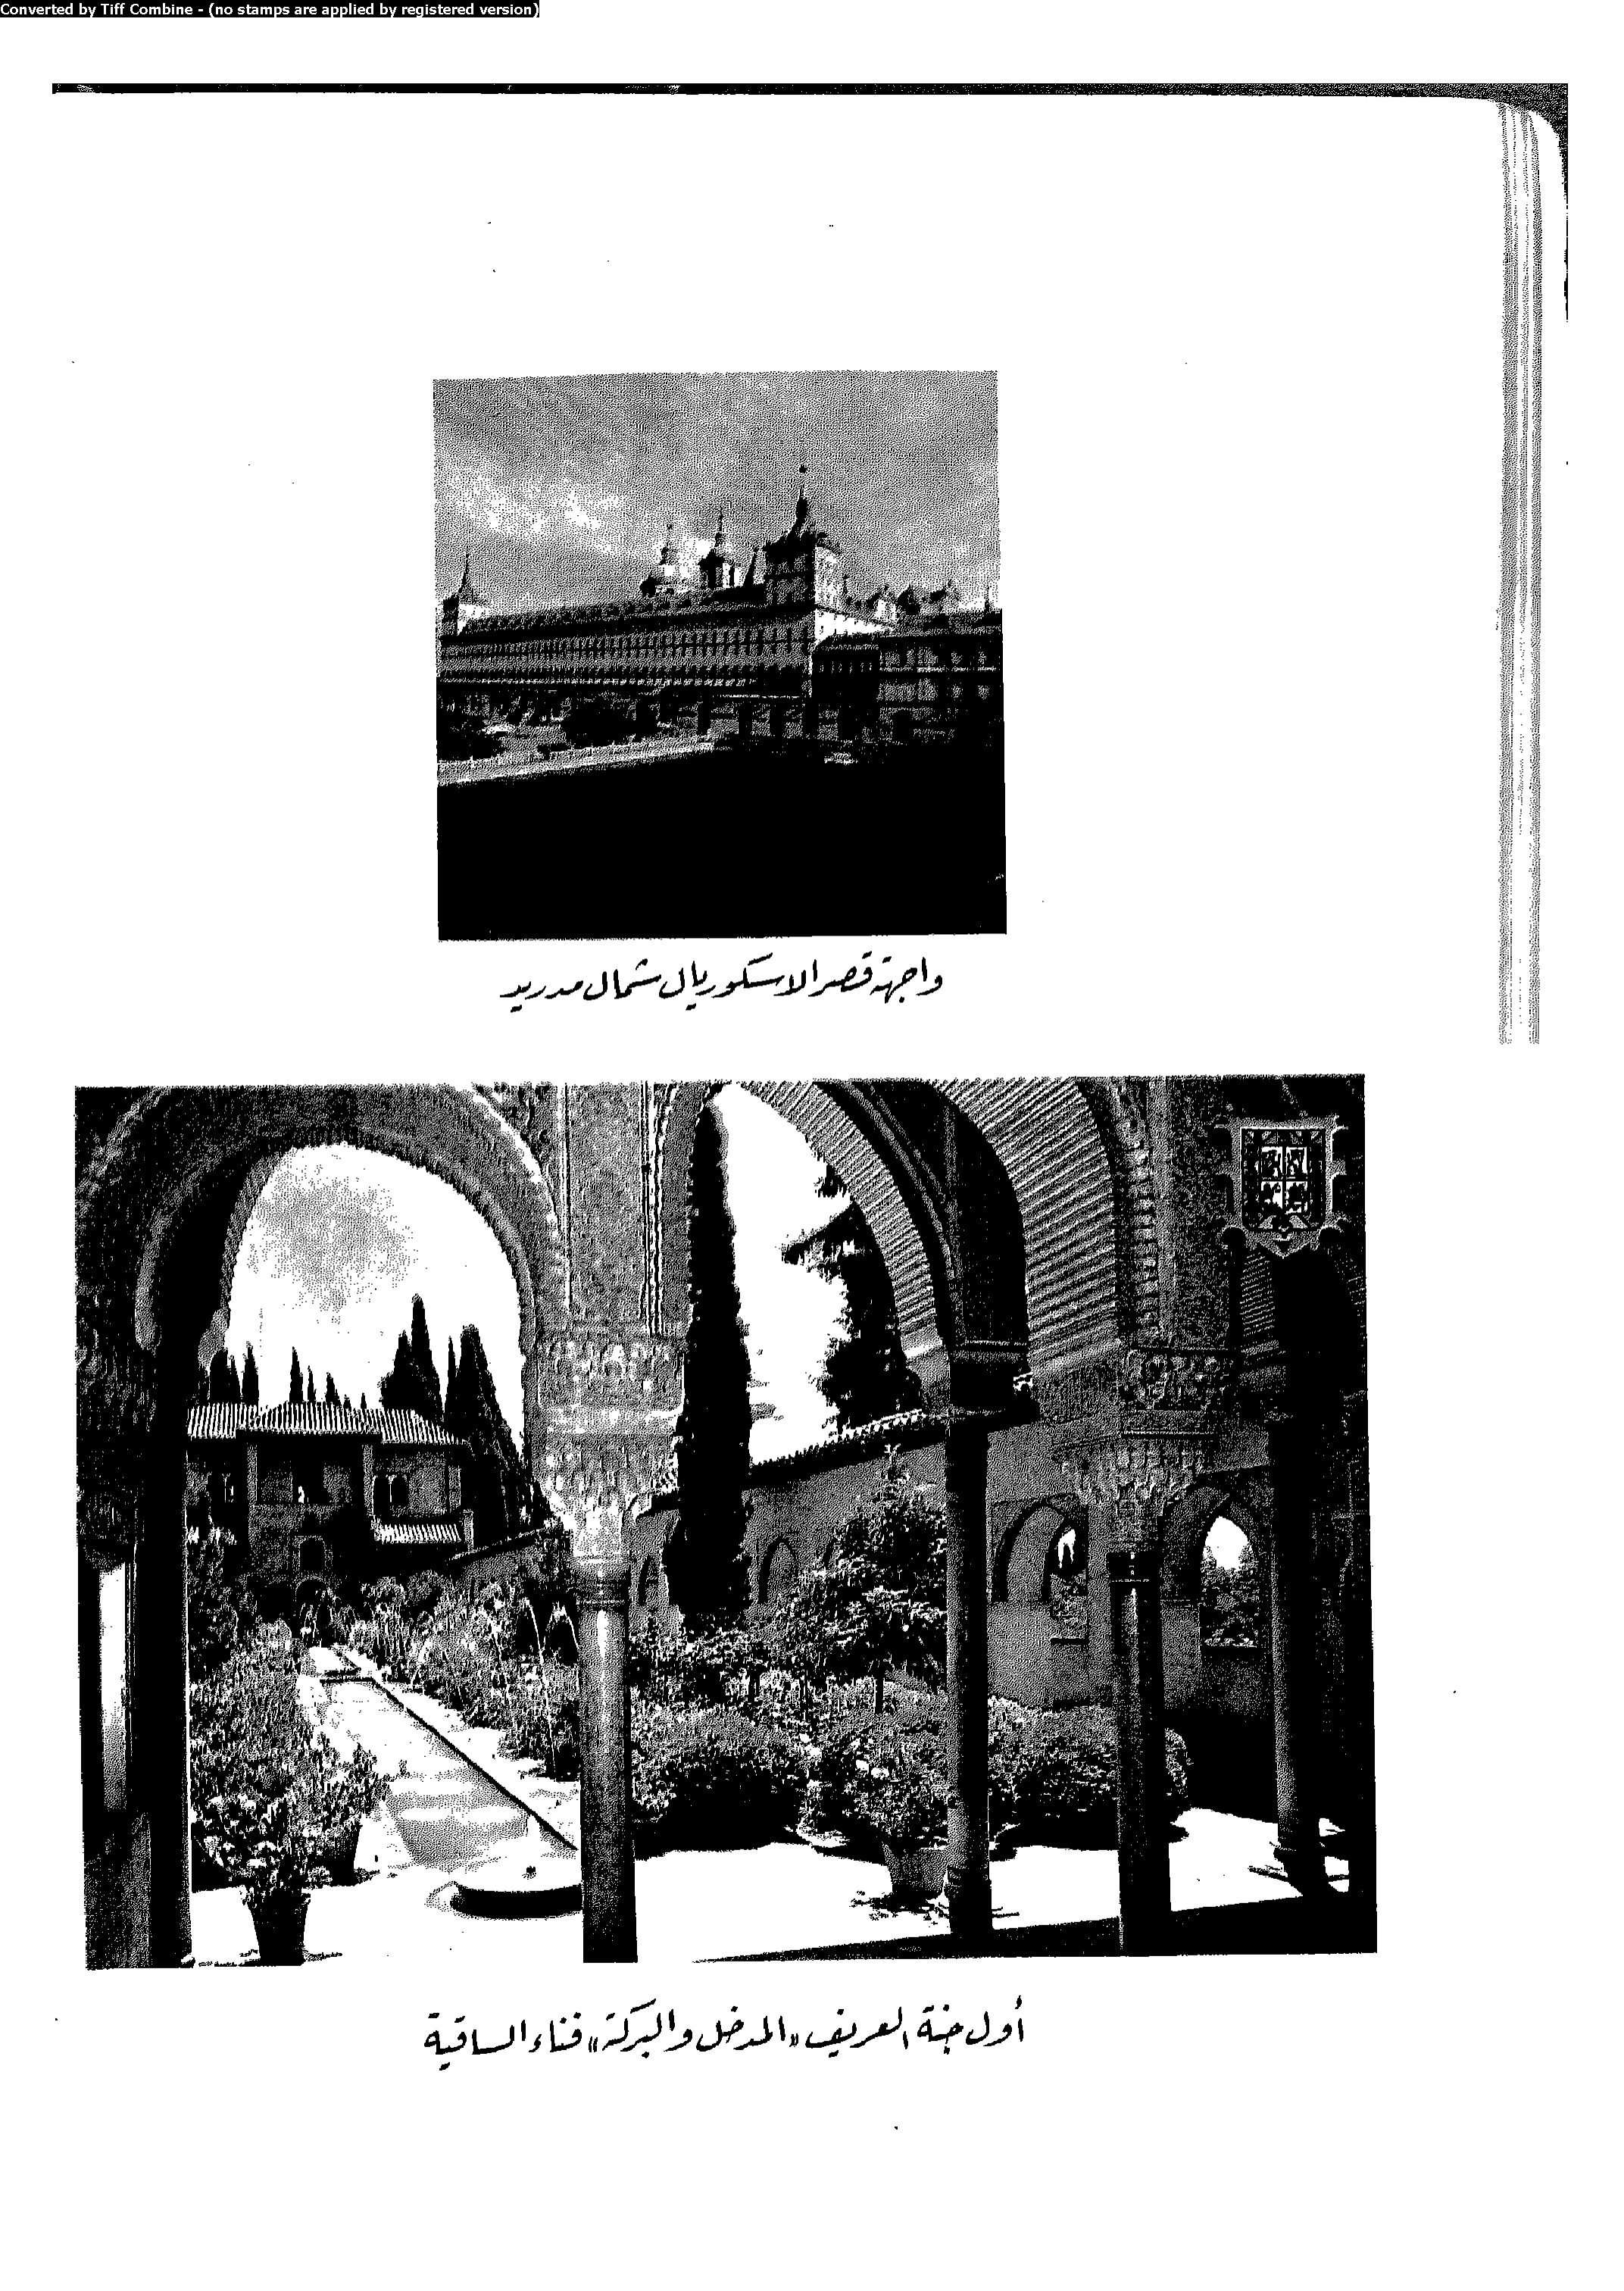 Converted by Tiff Combine - (no stamps are applied by registered version)
واجهة قصر الاسكوريال شمال مدريد
أول جنة العريف «المدخل والبركة» فناء الساقية